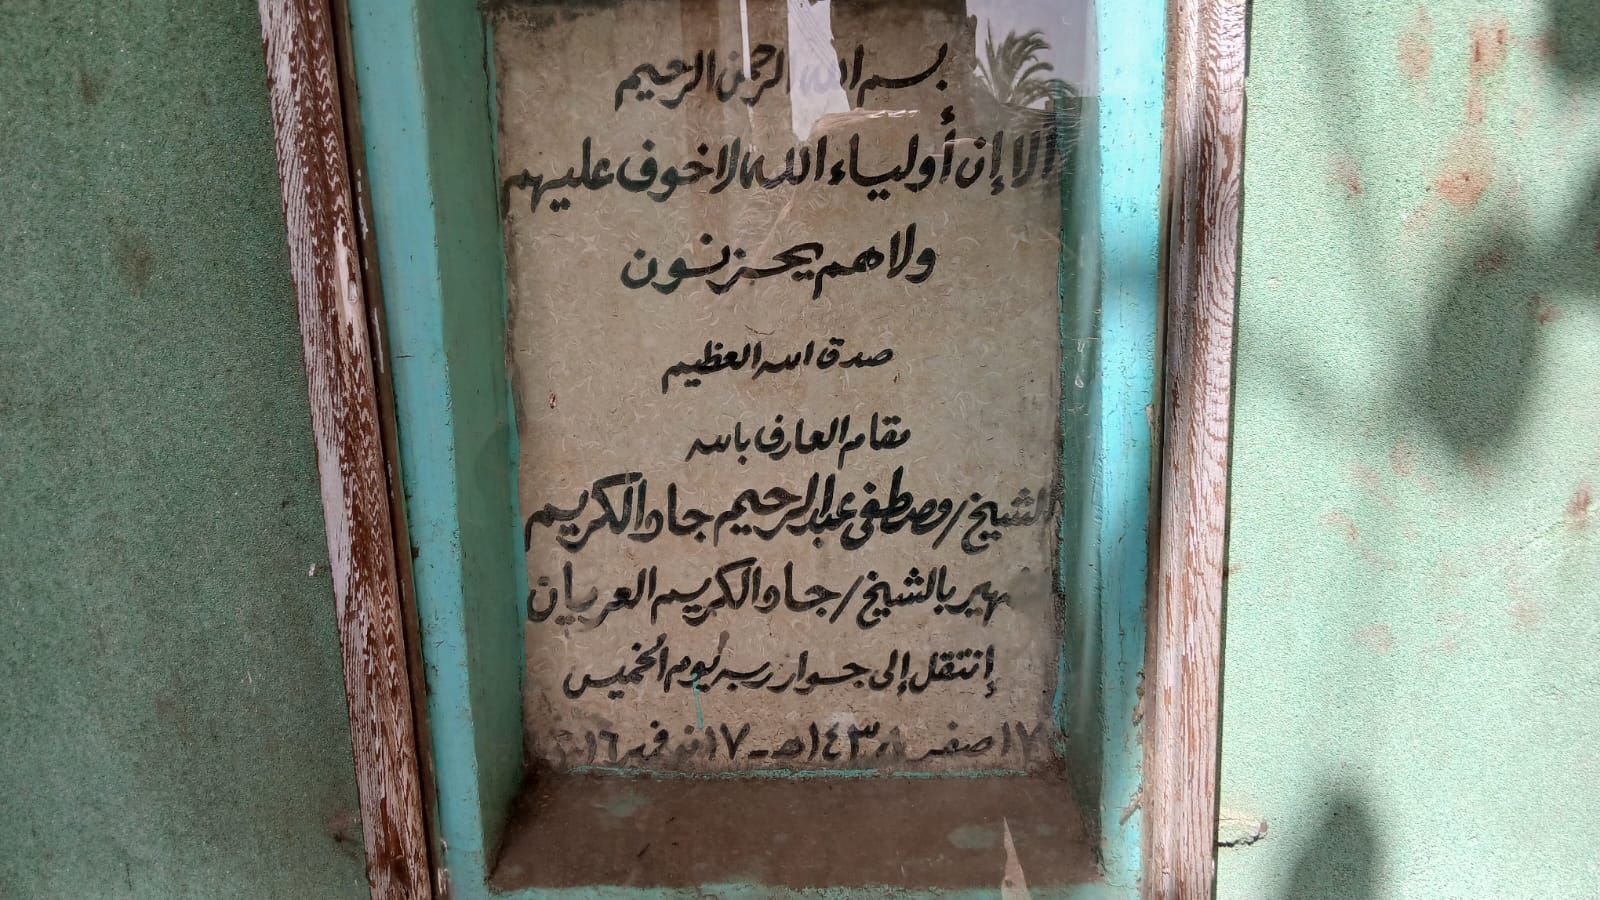 بسم الله الرحمن الرحيم
ألا إن أولياء الله لا خوف عليهم
ولا هم يحزنون
صدق الله العظيم
مقام العارف بالله
الشيخ / مصطفى عبد الرحيم جاد الكريم
الشهير بالشيخ / جاد الكريم العريان
إنتقل إلى جوار ربه يوم الخميس
١٧ صفر ١٤٣٨هـ - ١٧ نوفمبر ٢٠١٦م